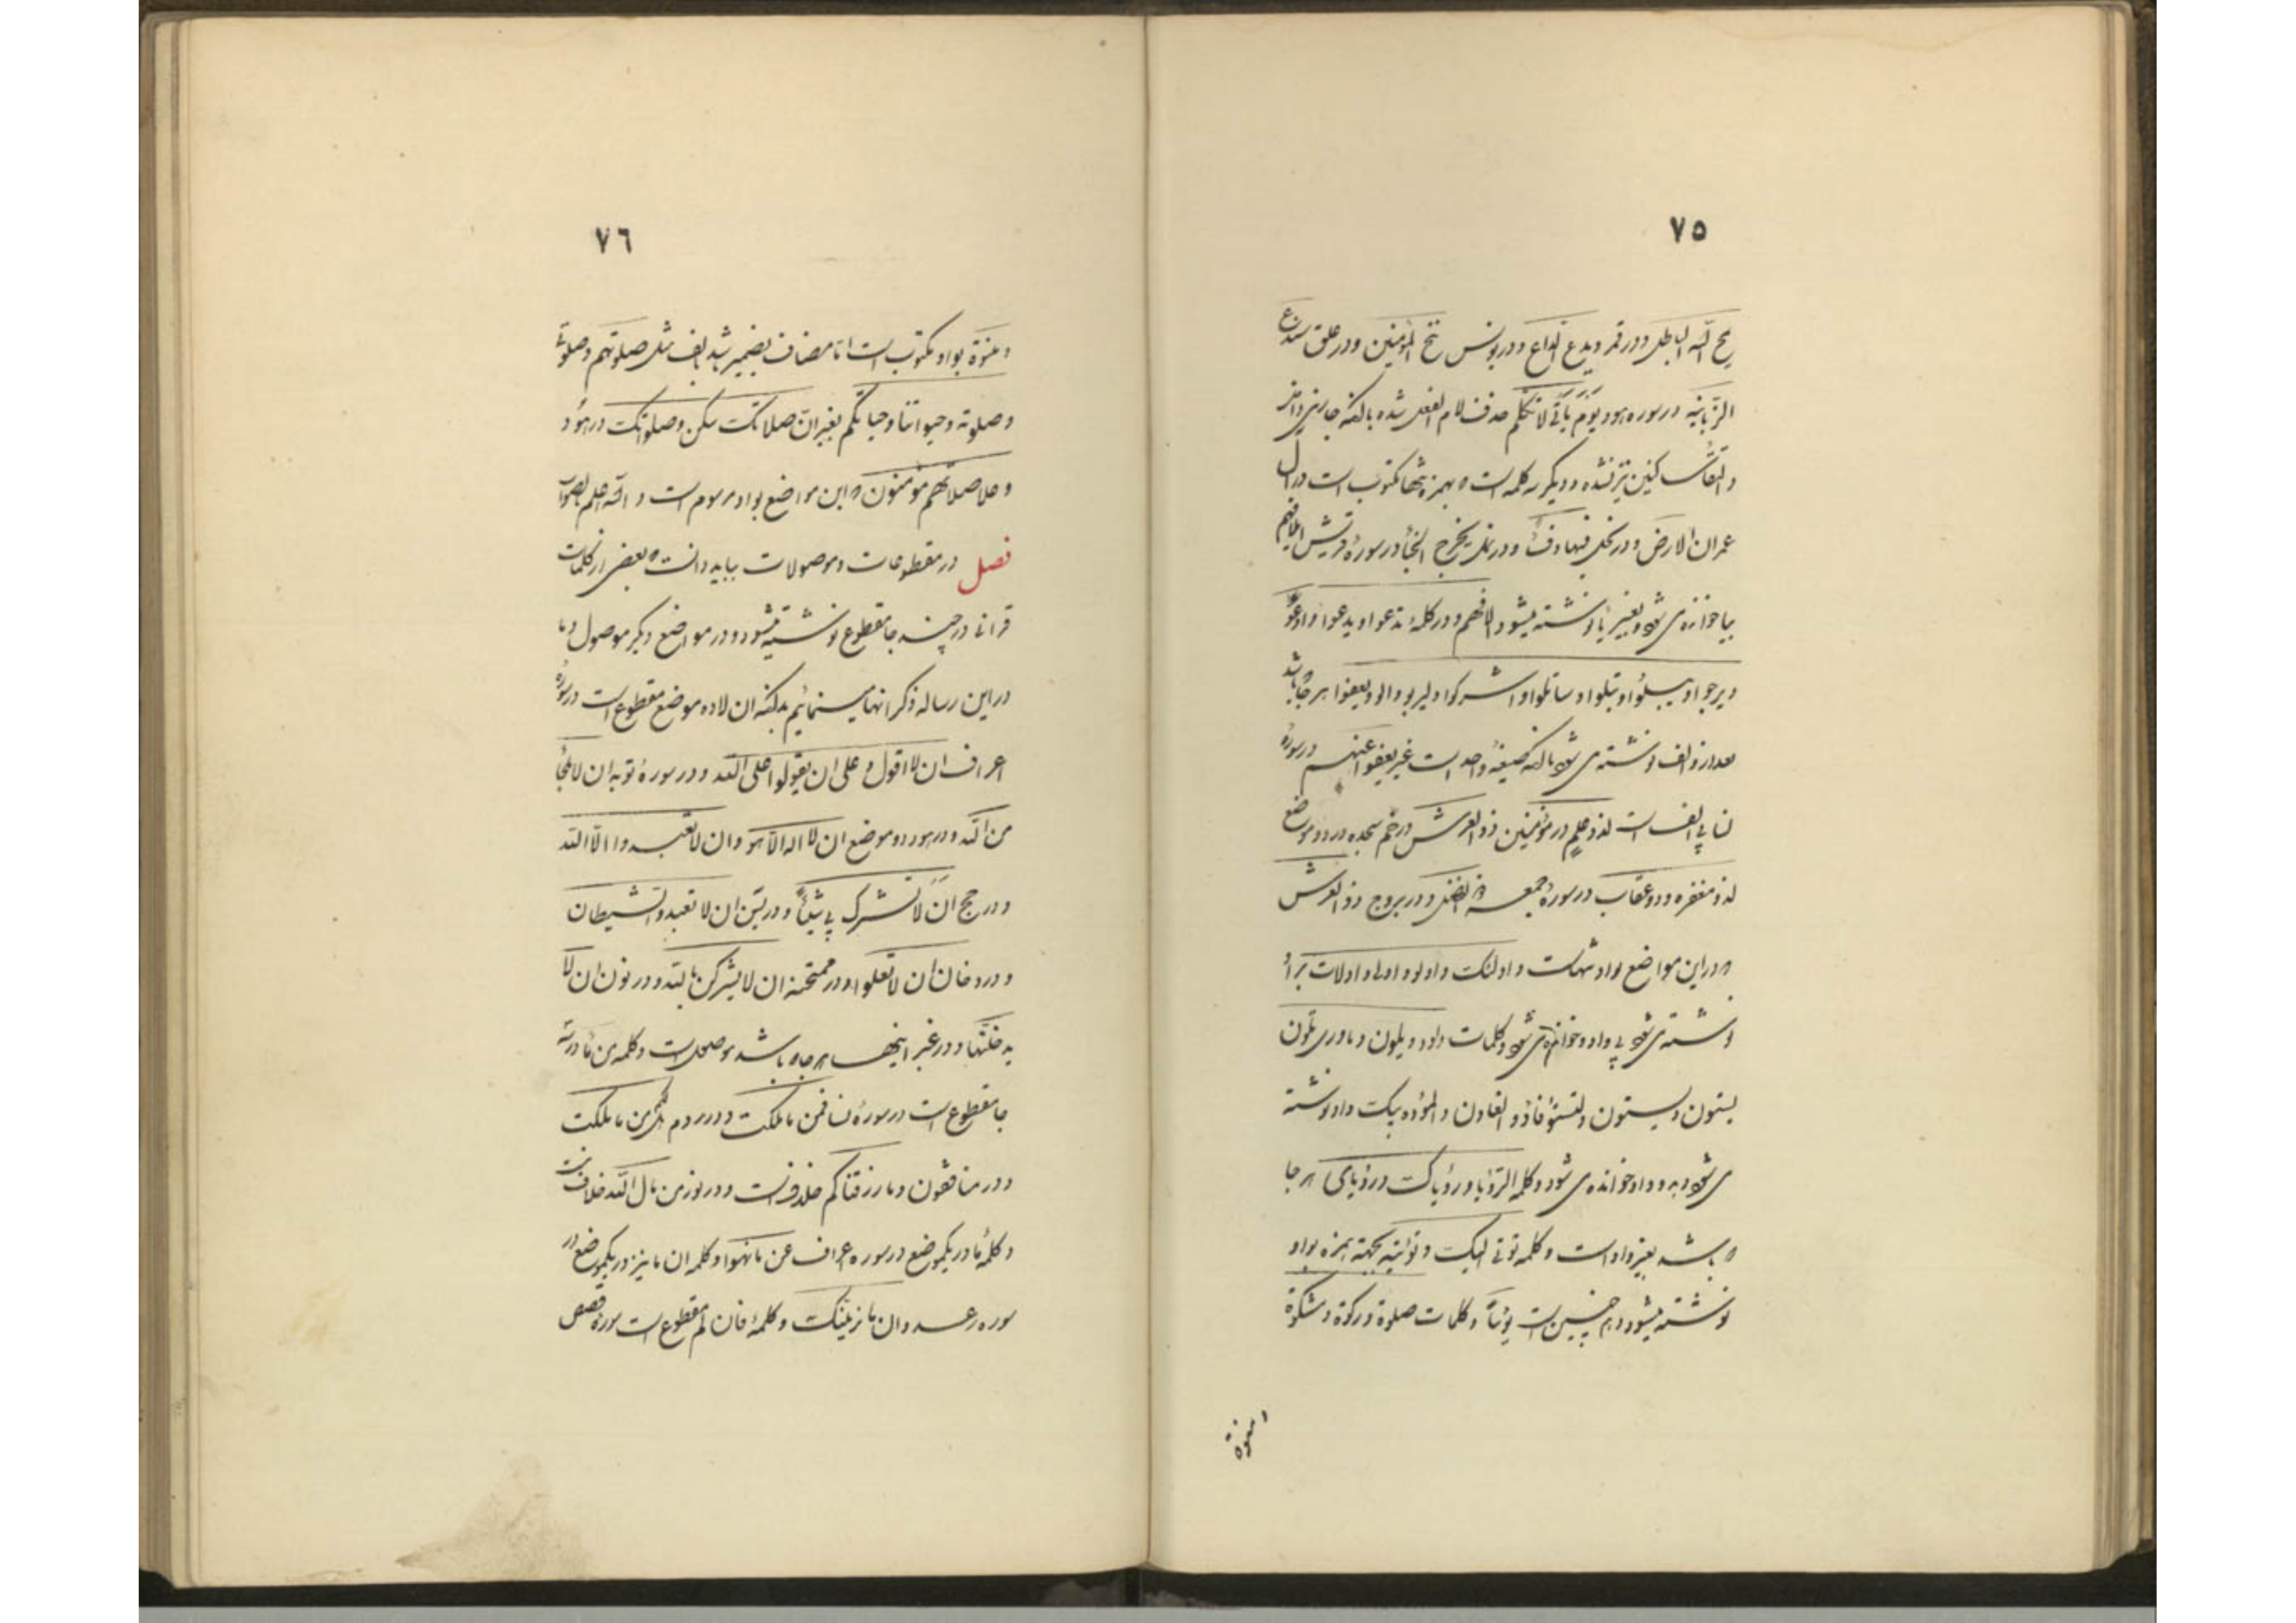 ٧٥
یمح الله الباطل و در قمر و یدع الداع و در یونس ننج المؤمنین و در علق سندع
الزبانیه در سوره هود یوم یأتی لا تکلم حذف لام الفعل شده بالکنه جا
و التقاء ساکنین نیز نشده و دیگر سه کلمه است که بهمزه تنها مکتوب است در ال
عمران الارض و در نحل فیها دفء و در نمل یخرج الخبأ در سورهٔ قریش ایلافهم
بیا خوانده می شود و بغیر یا نوشته میشود الافهم و در کلمهٔ تدعوا و یدعوا و ادعوا
و یرجوا و یبسلوا و تبلوا و ساتلوا و اشرکوا و لیربوا و الو و یعفوا هر جا باشد
بعد از واو الف نوشته می شود بالکنه صیغهٔ واحد است غیر یعفو عنهم در سورهٔ
نسا بی الف است لذو علم در مؤمنین ذو العرش در حم سجده در دو موضع
لذو مغفره و ذو عقاب در سورهٔ جمعه ذو الفضل و در بروج ذو العرش
که در این مواضع واو تنهاست و اولئک و اولو و اولی و اولات بر او
نوشته می شود بی واو خوانده می شود و کلمات داود و یلون و ماوری تلون
یستون و لیستون و لتستوا فأوو الغاون و المؤده بیک واو نوشته
می شود به دو واو خوانده می شود و کلمه الرؤیا و رؤیاک و رؤیای هر جا
که باشد بغیر واو است و کلمه تؤی الیک و تؤیه بجهته همزه بواو
نوشته میشود و هم چنین است یؤساً و کلمات صلوة و زکوة و مشکوة
و منوة
٧٦
و منوة بواو مکتوب است اما مضاف بضمیر شد بالف مثل صلوتهم و صلوتی
و صلوته و حیواتنا و حیاتکم بغیر ان صلاتک سکن و صلواتک در هود
و علی صلاتهم مؤمنون که این مواضع بواو مرسوم است و الله اعلم بالصواب
فصل در مقطوعات و موصولات بباید دانست که بعضی از کلمات
قرانی در چند جا مقطوع نوشته میشود و در مواضع دیگر موصول و ما
در این رساله ذکر انها مینمائیم بدانکه ان لا ده موضع مقطوع است در سورهٔ
اعراف ان لا اقول و علی ان یقولوا علی الله و در سورهٔ توبه ان لا ملجأ
من الله و در هود دو موضع ان لا اله الا هو و ان لا تعبدوا الا الله
و در حج ان لا تشرک بی شیئاً و در یس ان لا تعبدوا الشیطان
و در دخان ان لا تعلوا و در ممتحنه ان لا یشرکن بالله و در نون ان لا
یدخلنها و در غیر اینها هر جا که باشد موصول است و کلمه من ما در سه
جا مقطوع است در سورهٔ نسا فمن ما ملکت و در روم هل لکم من ما ملکت
و در منافقون و ما رزقناکم خلاف است و در نور من مال الله خلاف نیست
و کلمهٔ ما در یکموضع در سوره اعراف عن ما نهوا و کلمه ان ما نیز در یکموضع در
سوره رعد و ان ما نرینک و کلمهٔ فان لم مقطوع است سورهٔ قصص